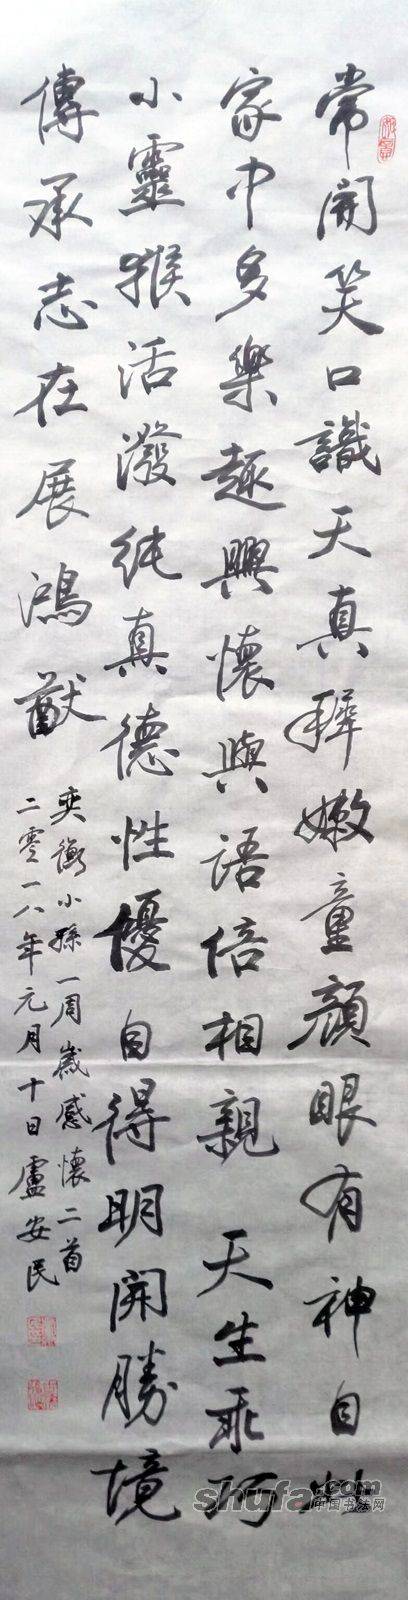 常開笑口識天真稺嫩童顔眼有神自
家中多樂趣興懷與語倍相親 天生乖巧
小靈猴活潑純真德性優自得明開勝境
傳承志在展鴻猷
奕衡小孫一周歲感懷二首
二零一八年元月十日盧安民
shufa.com
中国书法网